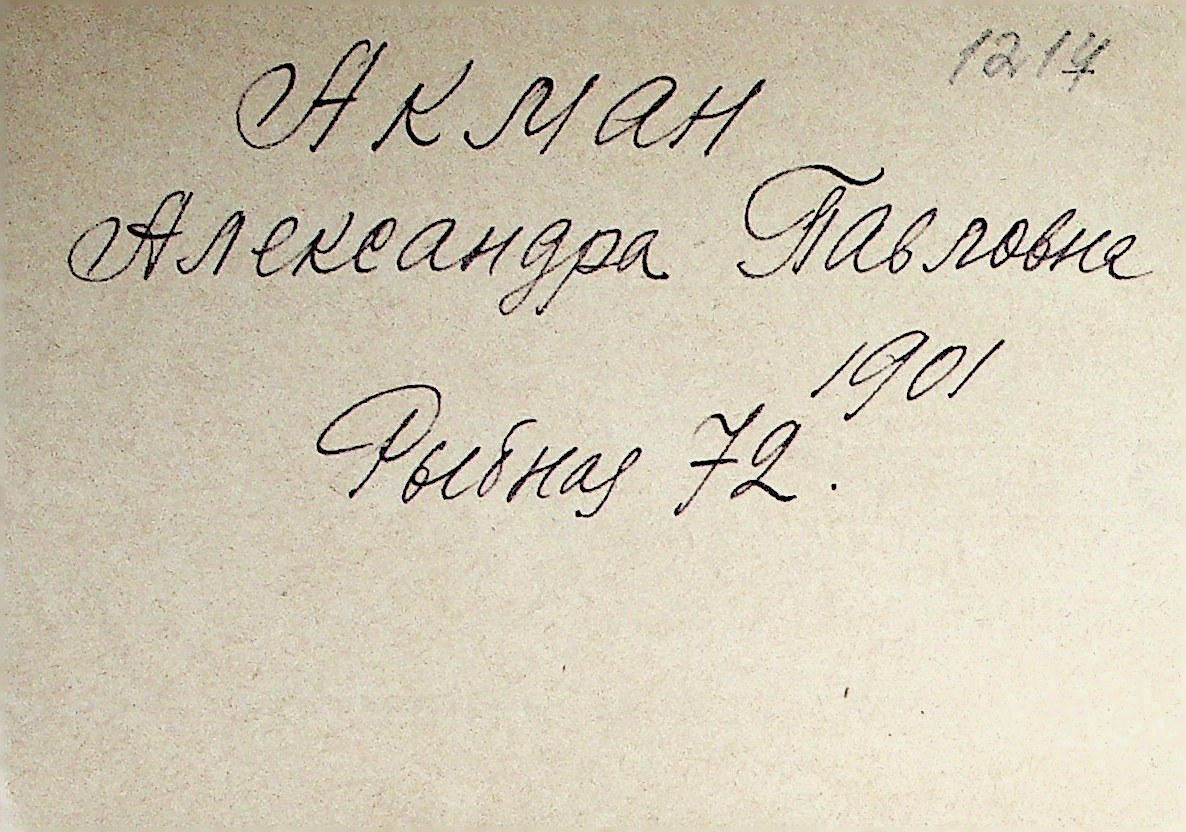 1214
Акман
Александра Павловна
1901
Рыбная 72.